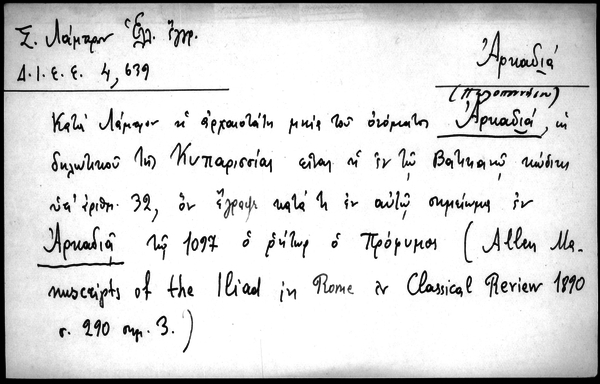 Σ. Λάμπρου Ἑλλ. ἔγγρ.
Δ.Ι.Ε.Ε. 4, 639
Ἀρκαδιά
(Πελοπόννησον)
Κατὰ Λάμπρον ἡ ἀρχαιοτάτη μνεία τοῦ ὀνόματος Ἀρκαδιά,
δηλωτικοῦ τῆς Κυπαρισσίας εἶναι ἡ ἐν τῷ Βατικανῷ κώδικι
ὑπ' ἀριθμ. 32, ὃν ἔγραψε κατὰ τὸ ἐν αὐτῷ σημείωμα ἐν
Ἀρκαδιᾷ τῷ 1097 ὁ ῥήτωρ ὁ Πρόδρομος (Allen Ma-
nuscripts of the Iliad in Rome ἐν Classical Review 1890
σ. 290 σημ. 3.)